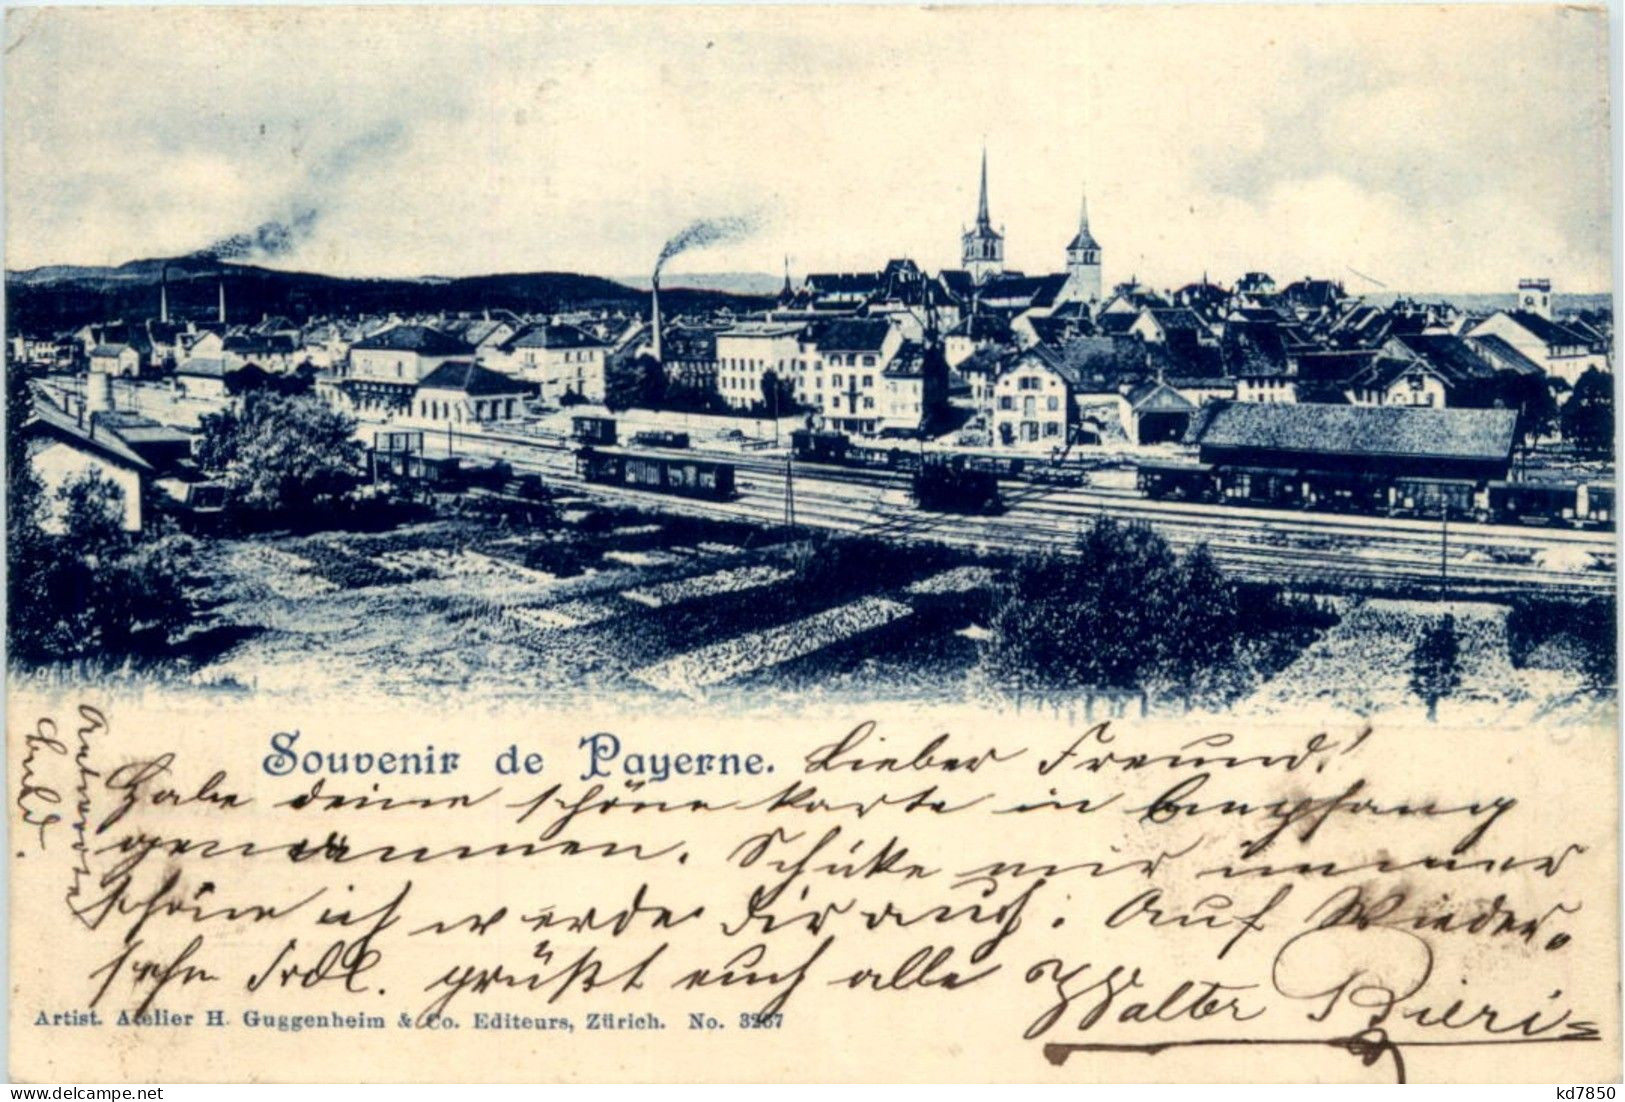 Souvenir de Payerne. Lieber Freund!
Habe deine schöne Karte in Empfang
genommen. Schike mir immer
schöne ich werde Dir auch. Auf Wieder-
sehn Frdl. grüßt euch alle Walter Bieri
Antworte
bald.
Artist. Atelier H. Guggenheim & Co. Editeurs, Zürich. No. 3267
kd7850